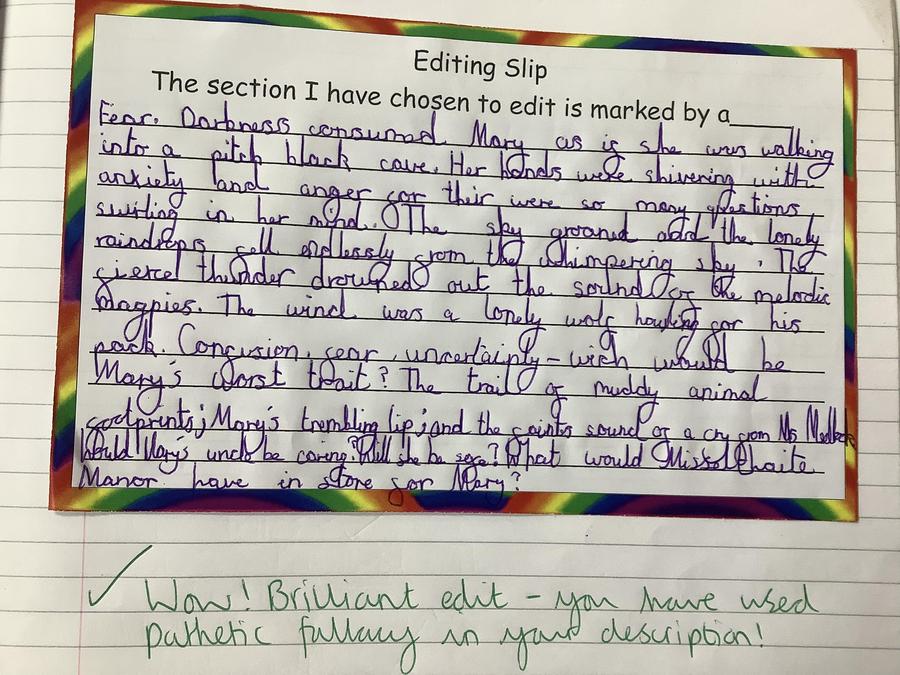 Editing Slip
The section I have chosen to edit is marked by a____
Fear. Darkness consumed Mary as if she was walking
into a pitch black cave. Her hands were shivering with
anxiety and anger for their were so many questions
swirling in her mind. The sky groaned and the lonely
raindrops fell endlessly from the whimpering sky. The
fierce thunder drowned out the sound of the melodic
magpies. The wind was a lonely wolf howling for his
pack. Confusion, fear, uncertainty - wich would be
Mary's worst trait? The trail of muddy animal
footprints; Mary's trembling lip; and the faints sound of a cry from Ms
Would Mary's uncle be caring? Will she be safe? What would Misslethaite
Manor have in store for Mary?
Wow! Brilliant edit - you have used
pathetic fallacy in your description!